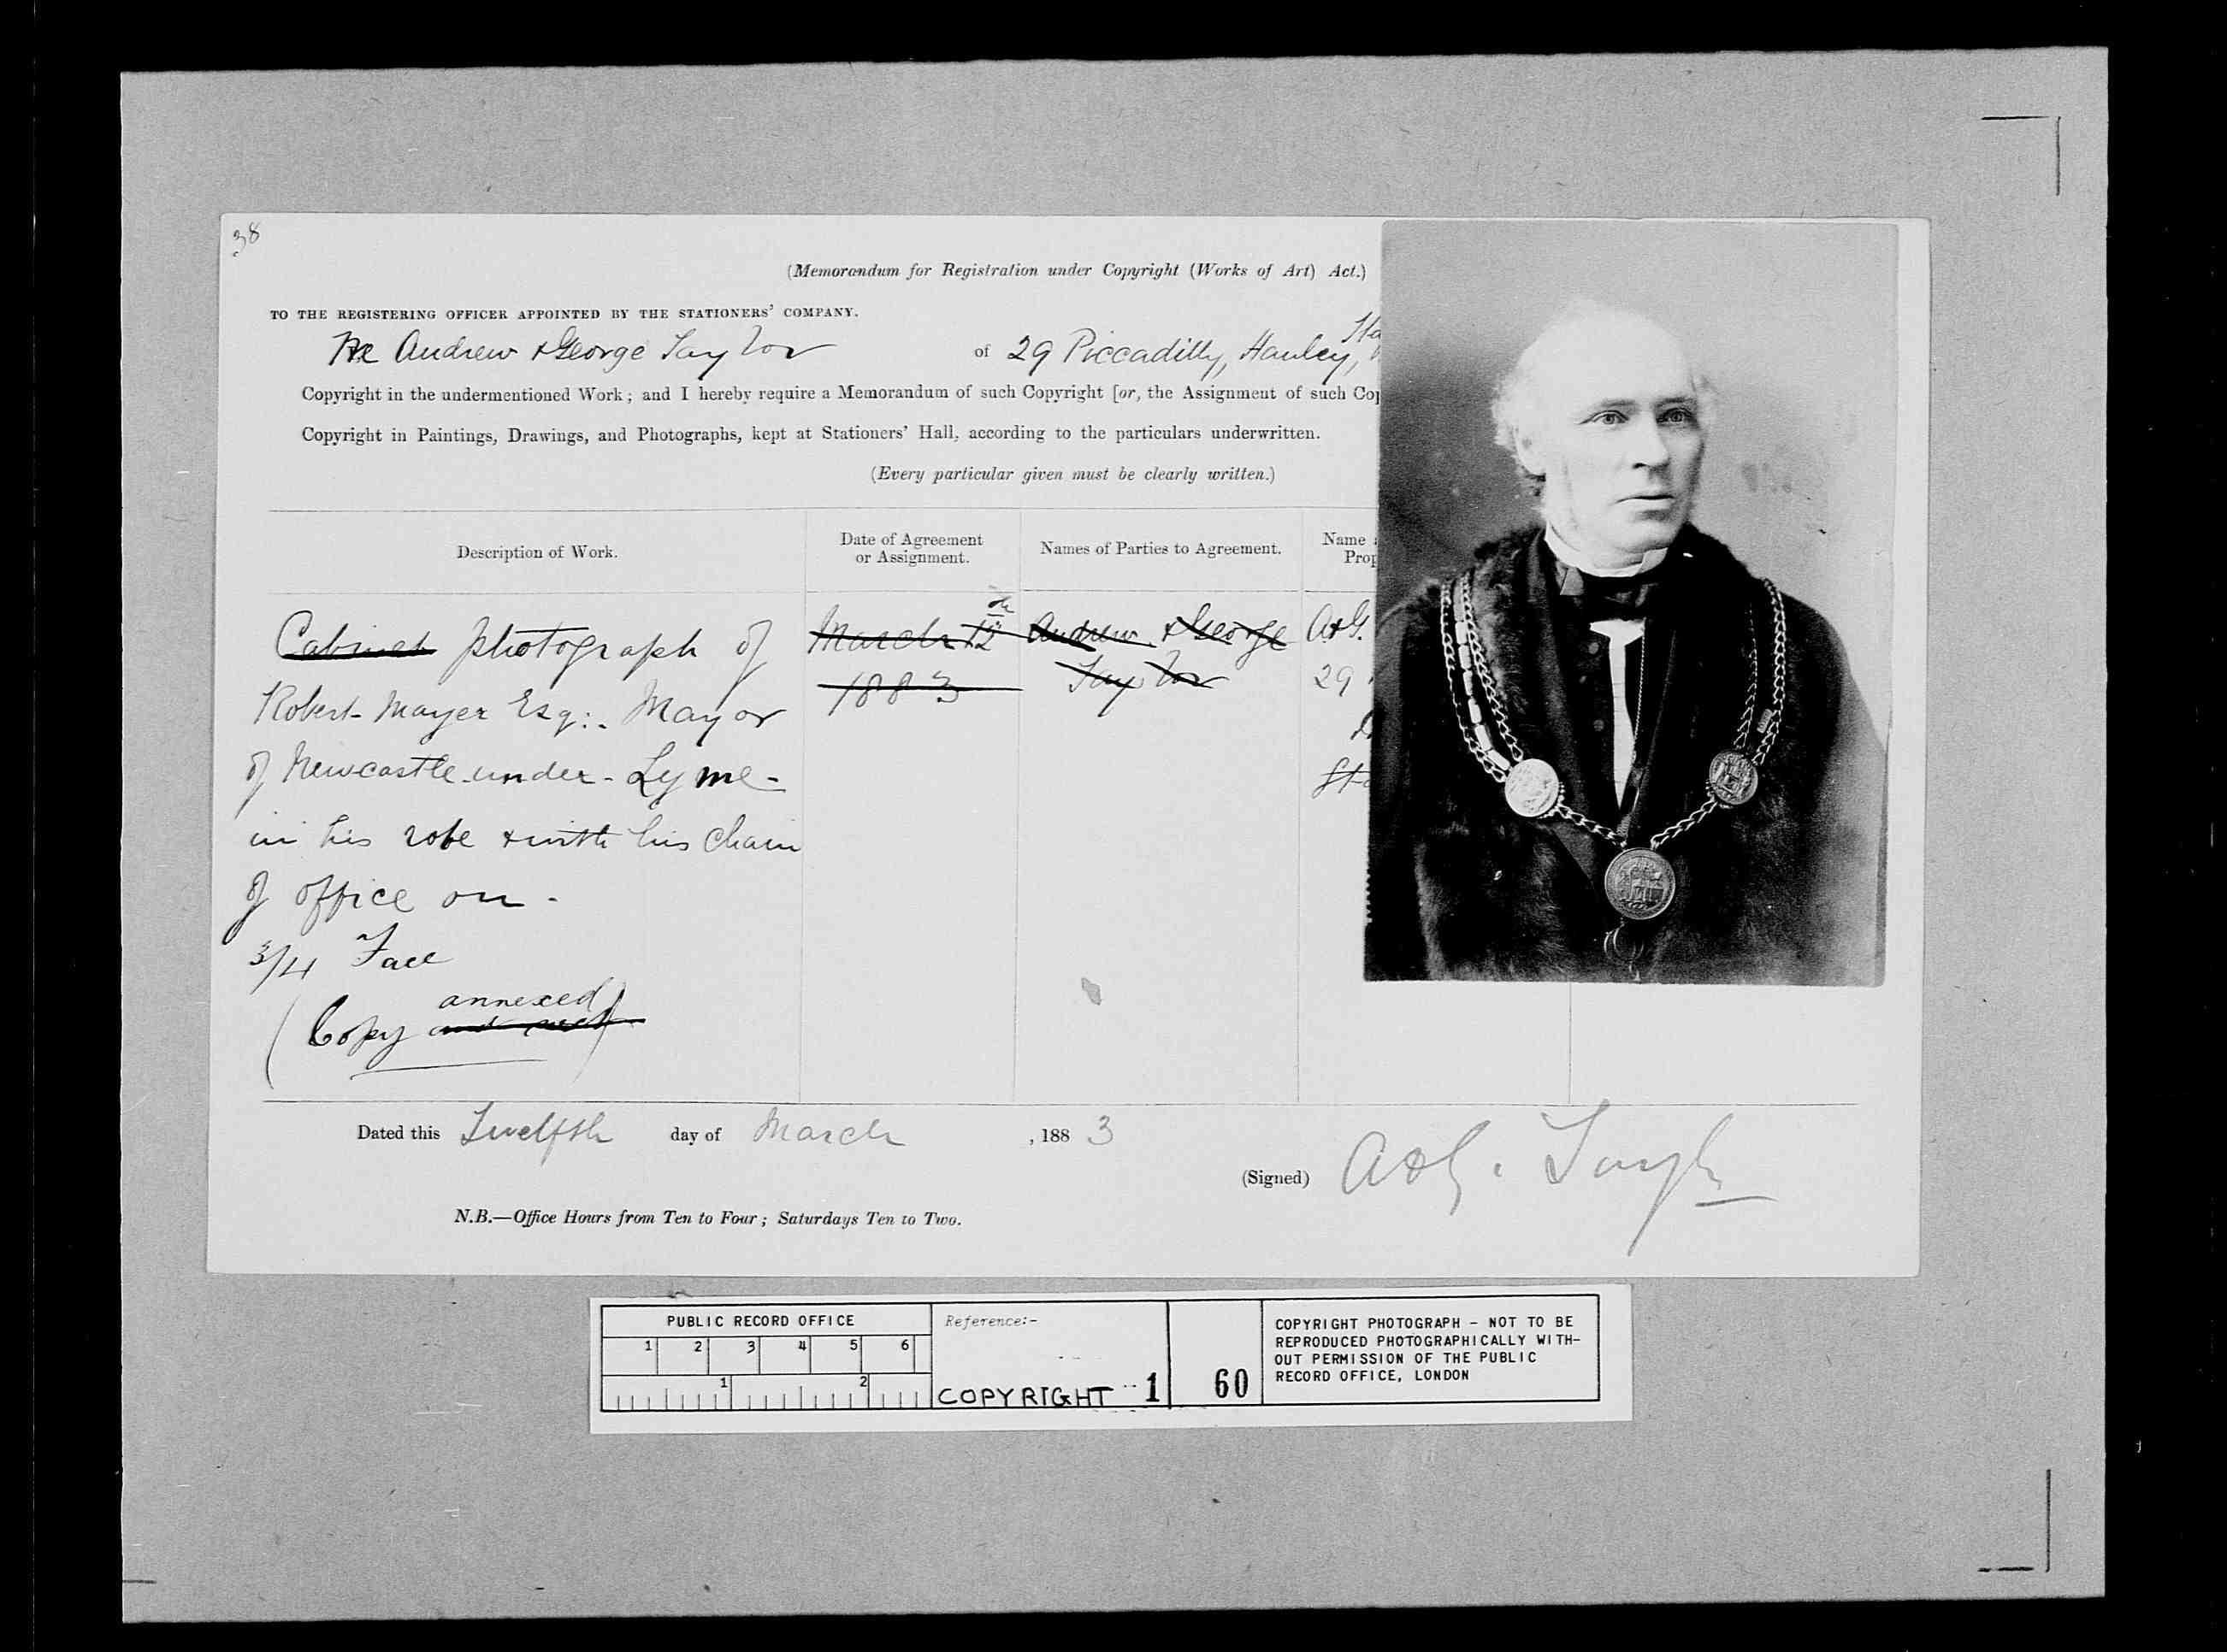 38
(Memorandum for Registration under Copyright (Works of Art) Act.)
TO THE REGISTERING OFFICER APPOINTED BY THE STATIONERS' COMPANY.
We Andrew & George Taylor of 29 Piccadilly, Hanley, Sta
Copyright in the undermentioned Work; and I hereby require a Memorandum of such Copyright [or, the Assignment of such Cop
Copyright in Paintings, Drawings, and Photographs, kept at Stationers' Hall, according to the particulars underwritten.
(Every particular given must be clearly written.)
Description of Work.
Date of Agreement
or Assignment.
Names of Parties to Agreement.
Name
Prop
Cabinet photograph of
Robert Mayer Esq:. Mayor
of Newcastle-under-Lyme-
in his robe & with his chain
of office on.
3/4 Face
annexed)
(Copy
March 12th
1883
Andrew & George
Taylor
A & G.
29
Sta
Dated this Twelfth day of March, 1883
(Signed) A & G. Taylor
N.B.—Office Hours from Ten to Four; Saturdays Ten to Two.
PUBLIC RECORD OFFICE
1 2 3 4 5 6
1 2
Reference:-
COPYRIGHT 1
60
COPYRIGHT PHOTOGRAPH - NOT TO BE
REPRODUCED PHOTOGRAPHICALLY WITH-
OUT PERMISSION OF THE PUBLIC
RECORD OFFICE, LONDON